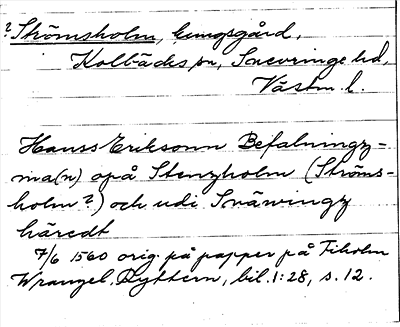 ? Strömsholm, kungsgård,
Kolbäcks sn, Snevringe hd,
Västm l.
Hanss Eriksonn Befalningz-
ma(n) opå Stenzholm (Ströms-
holm?) och udi Snäwingz
häredt
7/6 1560 orig. på papper på Tidholm
Wrangel, Ryttern, bil. 1:28, s. 12.